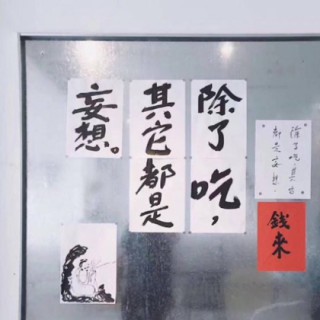 除了吃，
其它都是
妄想。
除了吃,其它
都是妄想.
錢来